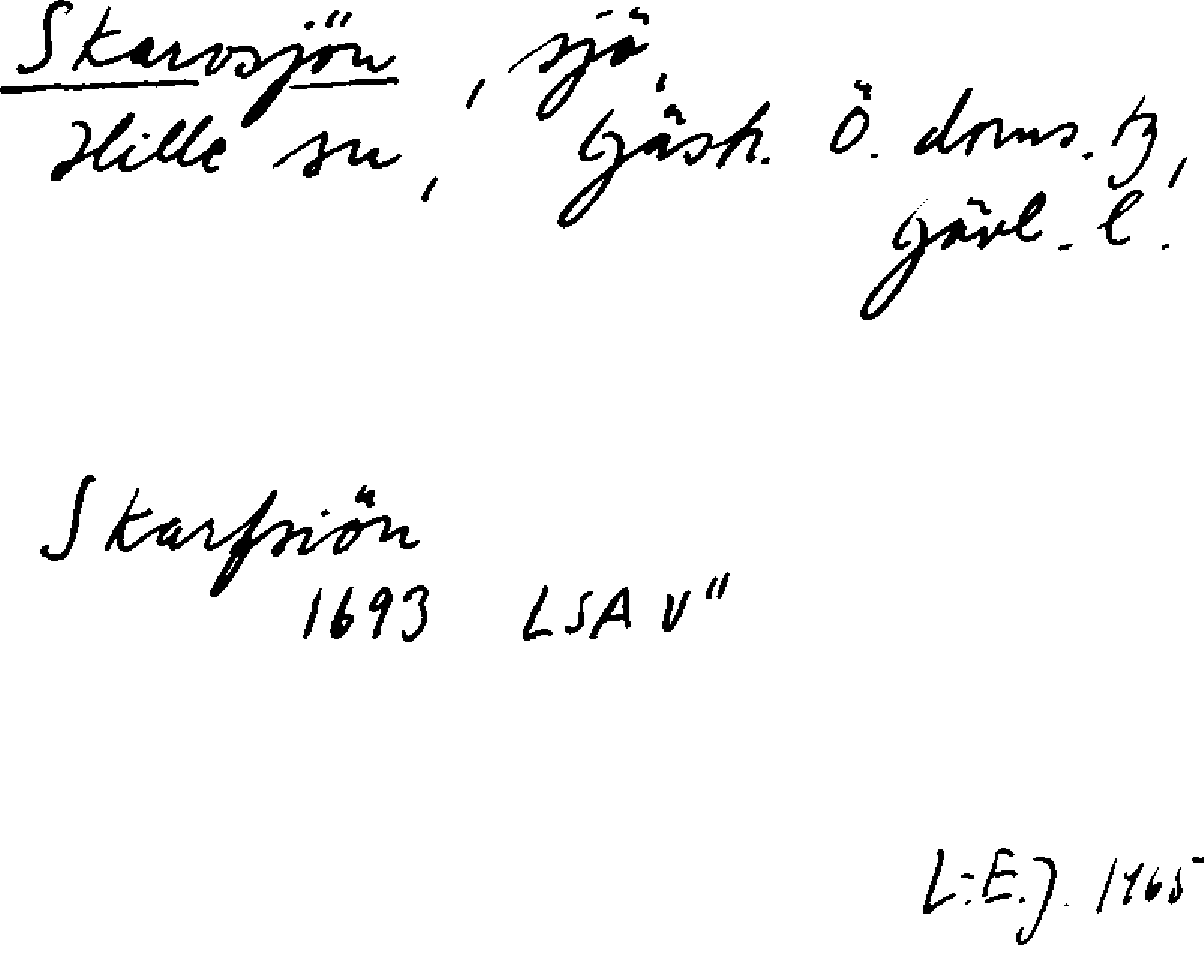 Skarvsjön, sjö,
Hille sn, Gästr. Ö. doms. tg,
Gävl. l.
Skarfsiön
1693 LSA V"
L:E.J. 1965